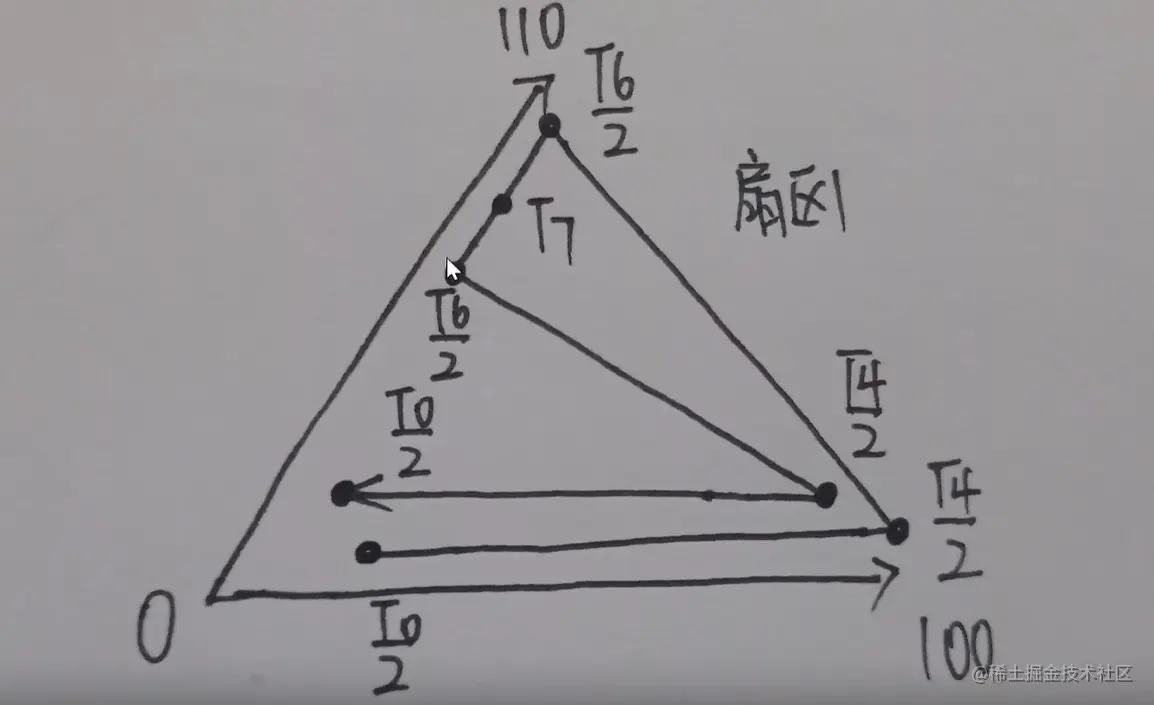 110
T6/2
扇区1
T7
T6/2
T4/2
T0/2
T4/2
0
T0/2
100
@稀土掘金技术社区